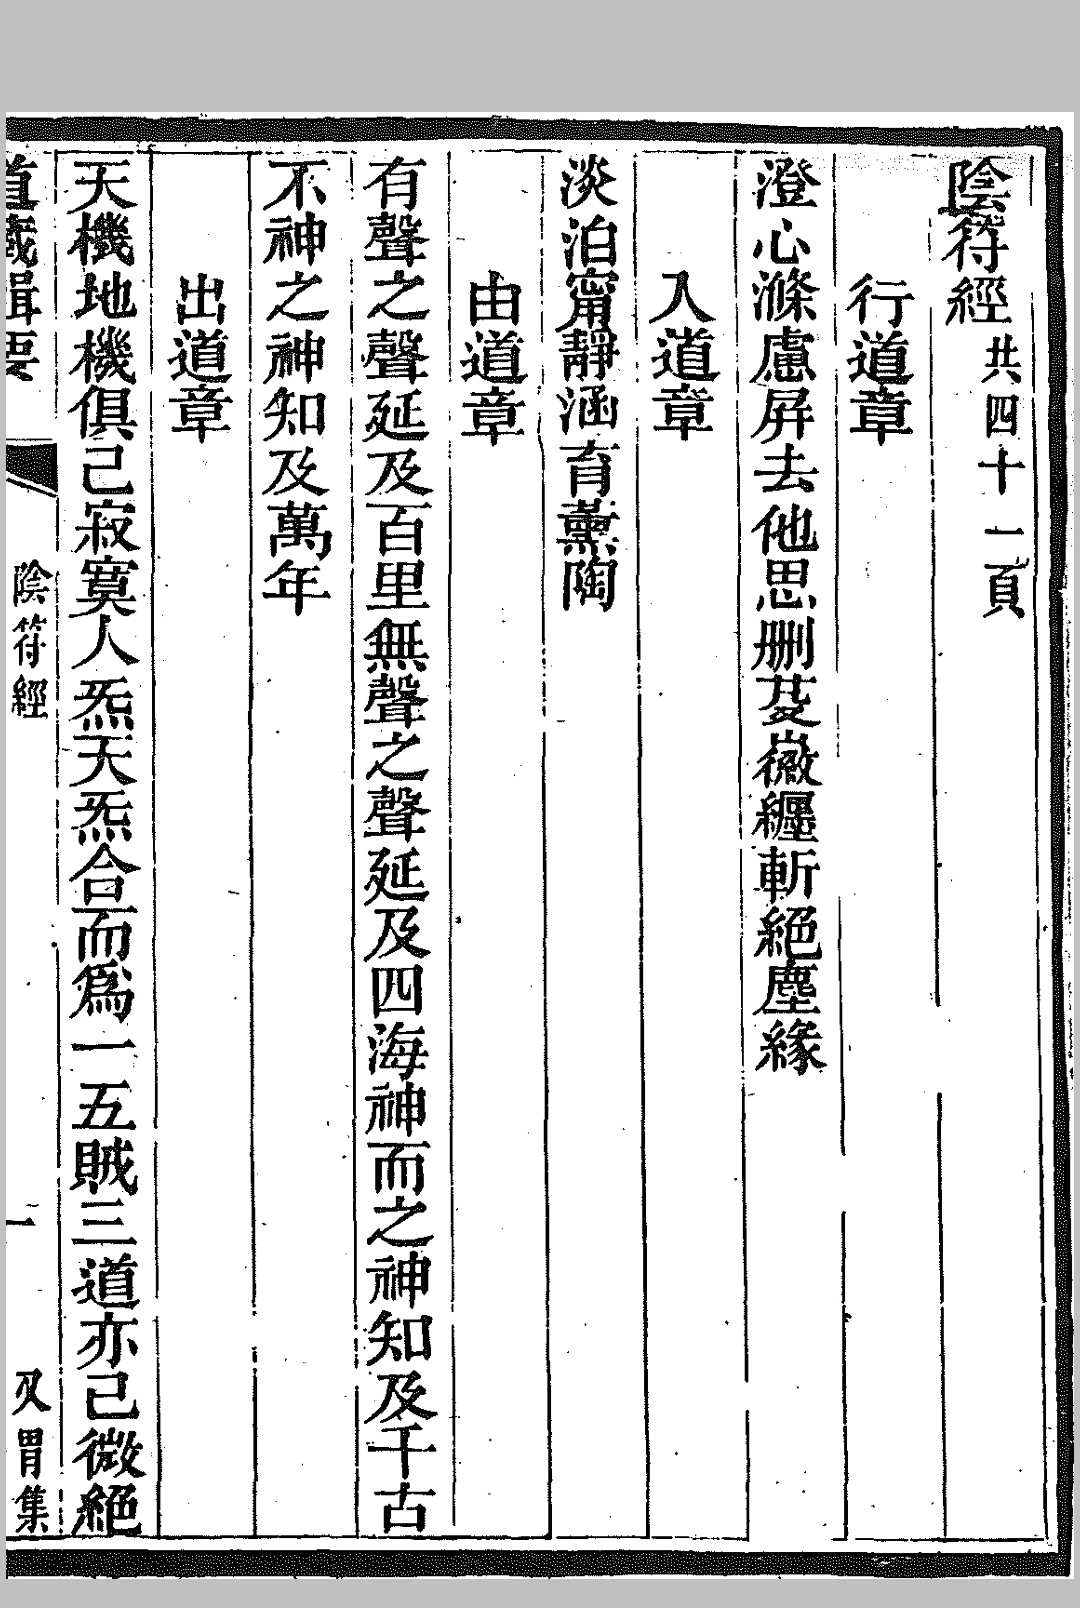 陰符經共四十一頁
行道章
澄心滌慮屛去他思刪芟徽纏斬絕塵緣
入道章
淡泊甯靜涵育薰陶
由道章
有聲之聲延及百里無聲之聲延及四海神而之神知及千古
不神之神知及萬年
出道章
天機地機俱己寂寞人炁天炁合而爲一五賊三道亦己微絕
道藏輯要
陰符經
一
又胃集